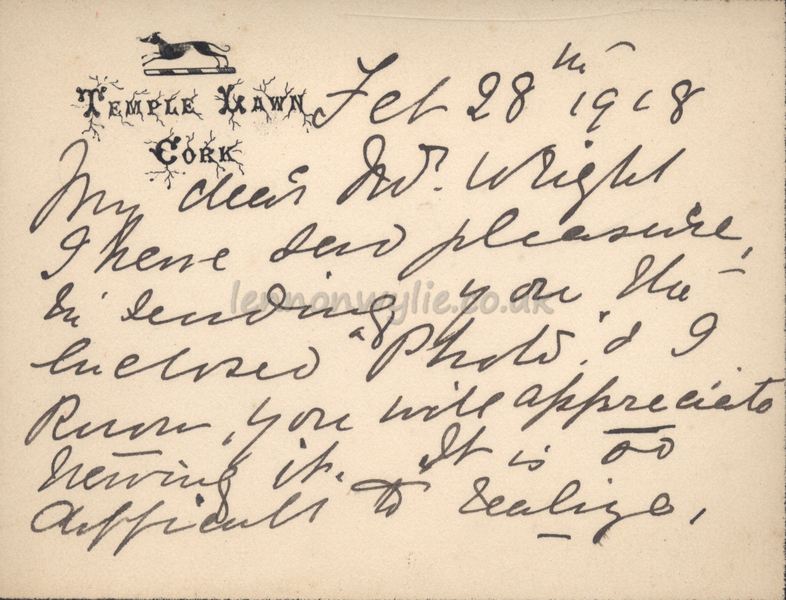 TEMPLE LAWN
CORK
Feb 28th 1918
My dear Mr. Wright
I have pleasure,
in sending you the
enclosed "Photo", & I
know, you will appreciate
having it. It is so
difficult to realize,
lennonwylie.co.uk